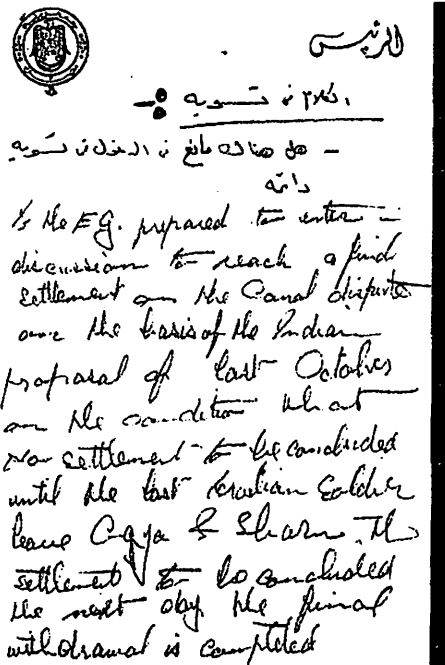 الرئيس
الكلام فى تسويه :-
- هل هناك مانع فى الدخول فى تسويه
دائمه
Is the E.G. prepared to enter in
discussion to reach a final
settlement on the Canal dispute
on the basis of the Indian
proposal of last October
on the condition that
no settlement to be concluded
until the last Israelian Soldier
leave Gaza & Sharm. The
settlement to be concluded
the next day the final
withdrawal is completed